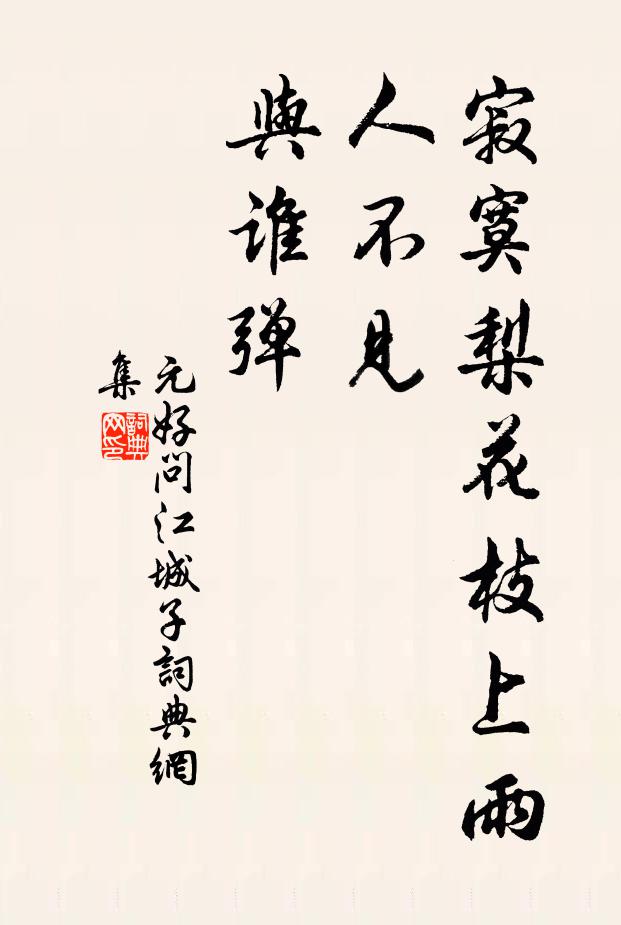 寂寞梨花枝上雨
人不見
與誰弹
元好问江城子詞典網
集
詞典
网印